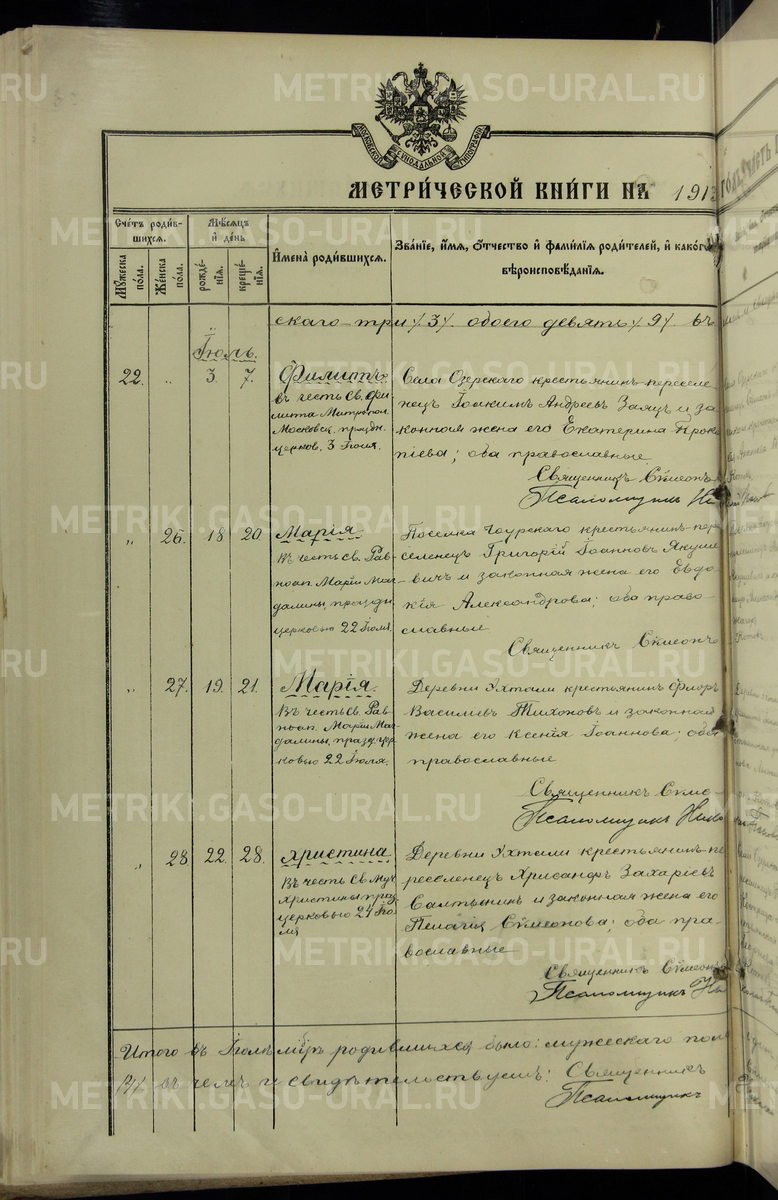 METRIKI.GASO-URAL.RU
МОСКОВСКОЙ СѴНОДАЛЬНОЙ ТИПОГРАФІИ
МЕТРИ́ЧЕСКОЙ КНИ́ГИ НА 1913
Сче́тъ роди́в-
шихся.
Мѣ́сяцъ
и де́нь
Мꙋ́жеска
по́ла.
Же́нска
по́ла.
рожде́-
нїя.
креще́-
нїя.
И҆мена̀ роди́вшихся.
Зва́нїе, и҆́мя, о҆́тчество и҆ фами́лїя роди́телей, и҆ како́гѡ
вѣроисповѣ́данїя.
скаго три /3/. обоего девять /9/. въ
Іюль.
22. " 3. 7. Филиппъ
въ честь Св. Фи-
липпа Митропол.
Московск. праздн.
церков. 3 Іюля.
Села Озерскаго крестьянинъ-пересе-
нецъ Іоакимъ Андреевъ Заяцъ и за-
конная жена его Екатерина Проко-
піева; оба православные
Священникъ Сѵмеонъ
Псаломщик Ни
" 26. 18 20 Марія
Въ честь Св. Рав-
ноап. Маріи Маг-
далины, праздн.
церковью 22 Іюля.
Поселка Чоурскаго крестьянинъ-пер-
селенецъ Григорій Іоанновъ Якуше-
вичъ и законная жена его Евдо-
кія Александрова; оба право-
славные
Священникъ Сѵмеонъ
" 27. 19. 21. Марія.
Въ честь Св. Рав-
ноап. Маріи Маг-
далины, празд. цер-
ковью 22 Іюля.
Деревни Ухтали крестьянинъ Флоръ
Васильевъ Тихоновъ и законная
жена его Ксенія Іоаннова; оба
православные
Священникъ Сѵмео-
Псаломщик Нико
" 28 22. 28. Христина
Въ честь Св. Муч.
Христины празд.
церковью 24 Ію-
ля
Деревни Ухтали крестьянинъ-пе-
реселенецъ Хрисанфъ Захаріевъ
Салтынинъ и законная жена его
Пелагія Сѵмеонова; оба пра-
вославные
Священникъ Сѵмеонъ
Псаломщикъ Ни
Итого въ Іюлѣ мцѣ родившихся было: мужескаго пол
/1/ въ чемъ и свидѣтельствуемъ: Священникъ
Псаломщикъ